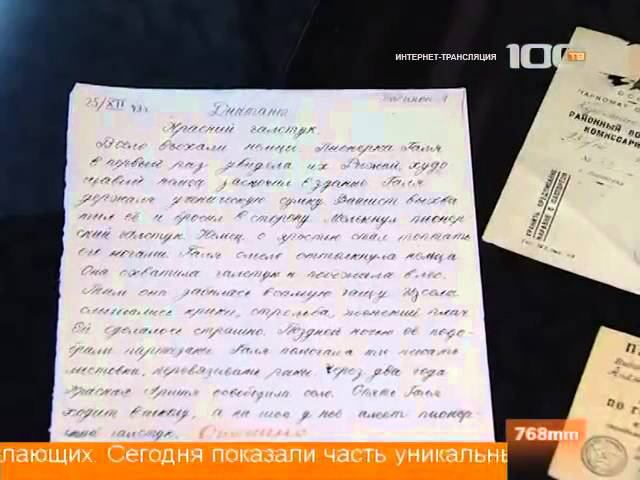 ИНТЕРНЕТ-ТРАНСЛЯЦИЯ 100 ТВ
25/XII 43г.
Диктант
Красный галстук.
В село въехали немцы. Пионерка Галя
в первый раз увидела их. Рыжий, худо-
щавый немец заскочил в здание. Галя
держала ученическую сумку. Фашист выхва-
тил её и бросил в сторону. Мелькнул пионер-
ский галстук. Немец с яростью стал топтать
его ногами. Галя смело оттолкнула немца.
Она схватила галстук и побежала в лес.
Там она забилась в самую чащу. Из села
слышались крики, стрельба, женский плач.
Ей сделалось страшно. Поздной ночью её подо-
брали партизаны. Галя помогала им писать
листовки, перевязывать раны. Через два года
Красная Армия освободила село. Опять Галя
ходит в школу, а на шее у неё алеет пионер-
ский галстук. Отлично
НАРКОМАТ
РАЙОННЫЙ
КОМИССАР
ХРАНИТЬ
НАРАВНЕ С ПАСПОРТОМ
768mm
лающих. Сегодня показали часть уникальн